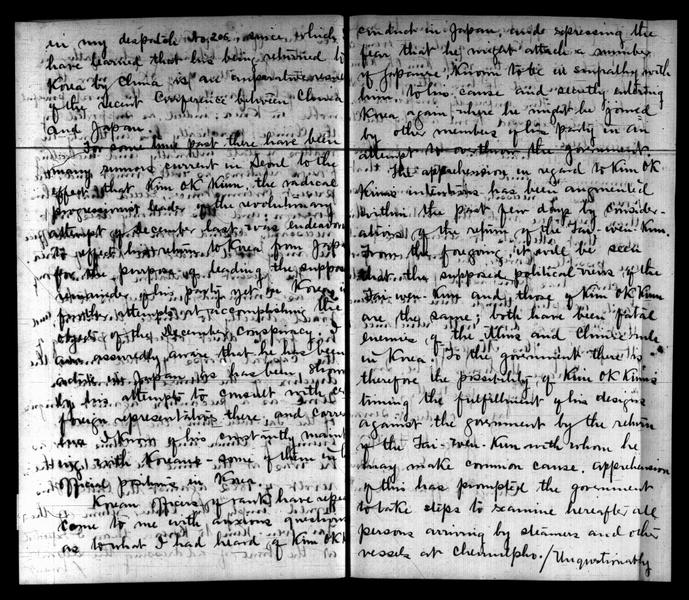 in my despatch No, 206, since which I
have learned that his being returned to
Korea by China is an
of the recent Conference between China
and Japan.
For some time past there have been
many rumors current in Seoul to the
effect that Kim OK Kiun, the radical
progressionist leader of the revolutionary
attempt of December last, was endeavor
to effect his return to Korea from Japan
for the purpose of leading the supposed
remainder of his party yet in Korea in
further attempts at accomplishing the
objects of the December conspiracy. I
am assuredly aware that he has been
active in Japan, as has been shown
by his attempts to consult with certain
foreign representatives there, and
I know of his constantly
with Koreans - some of them in
official positions in Korea.
Korean officers of rank have
come to me with anxious questions
as to what I had heard of Kim OK K
conduct in Japan, and expressing the
fear that he might attach a number
of Japanese, known to be in sympathy with
him, to his cause and secretly entering
Korea again, where he might be joined
by other members of his party in an
attempt to overthrow the government.
The apprehension in regard to Kim OK
Kiun's intentions has been augmented
within the past few days by consider-
ations of the return of the Tai-wen-Kun.
From the foregoing it will be seen
that the supposed political views of the
Tai-wen-Kun and those of Kim OK Kiun
are the same; both have been fatal
enemies of the Mins and Chinese rule
in Korea. To the government there is
therefore the possibility of Kim OK Kiun's
timing the fulfillment of his designs
against the government by the return
of the Tai-wen-Kun with whom he
may make common cause. Apprehension
of this has prompted the government
to take steps to examine hereafter all
persons arriving by steamers and other
vessels at Chemulpho./Unquestionably